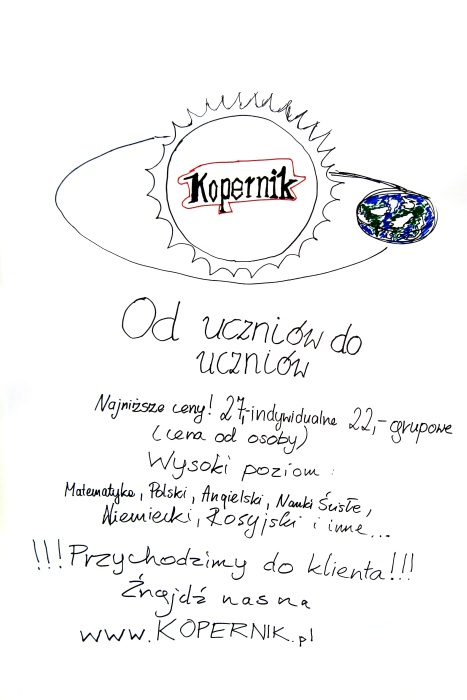 Kopernik
Od uczniów do
uczniów
Najniższe ceny! 27,-indywidualne 22,- grupowe
(cena od osoby)
Wysoki poziom :
Matematyka, Polski, Angielski, Nauki Ścisłe,
Niemiecki, Rosyjski i inne...
!!!Przychodzimy do klienta!!!
Znajdź nas na
www.KOPERNIK.pl